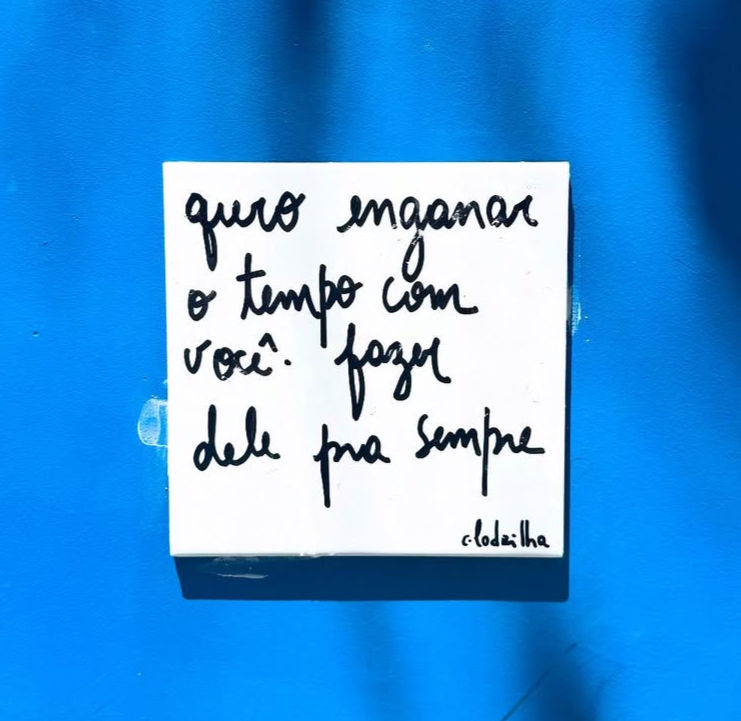 quero enganar
o tempo com
você. fazer
dele pra sempre
clodzilha